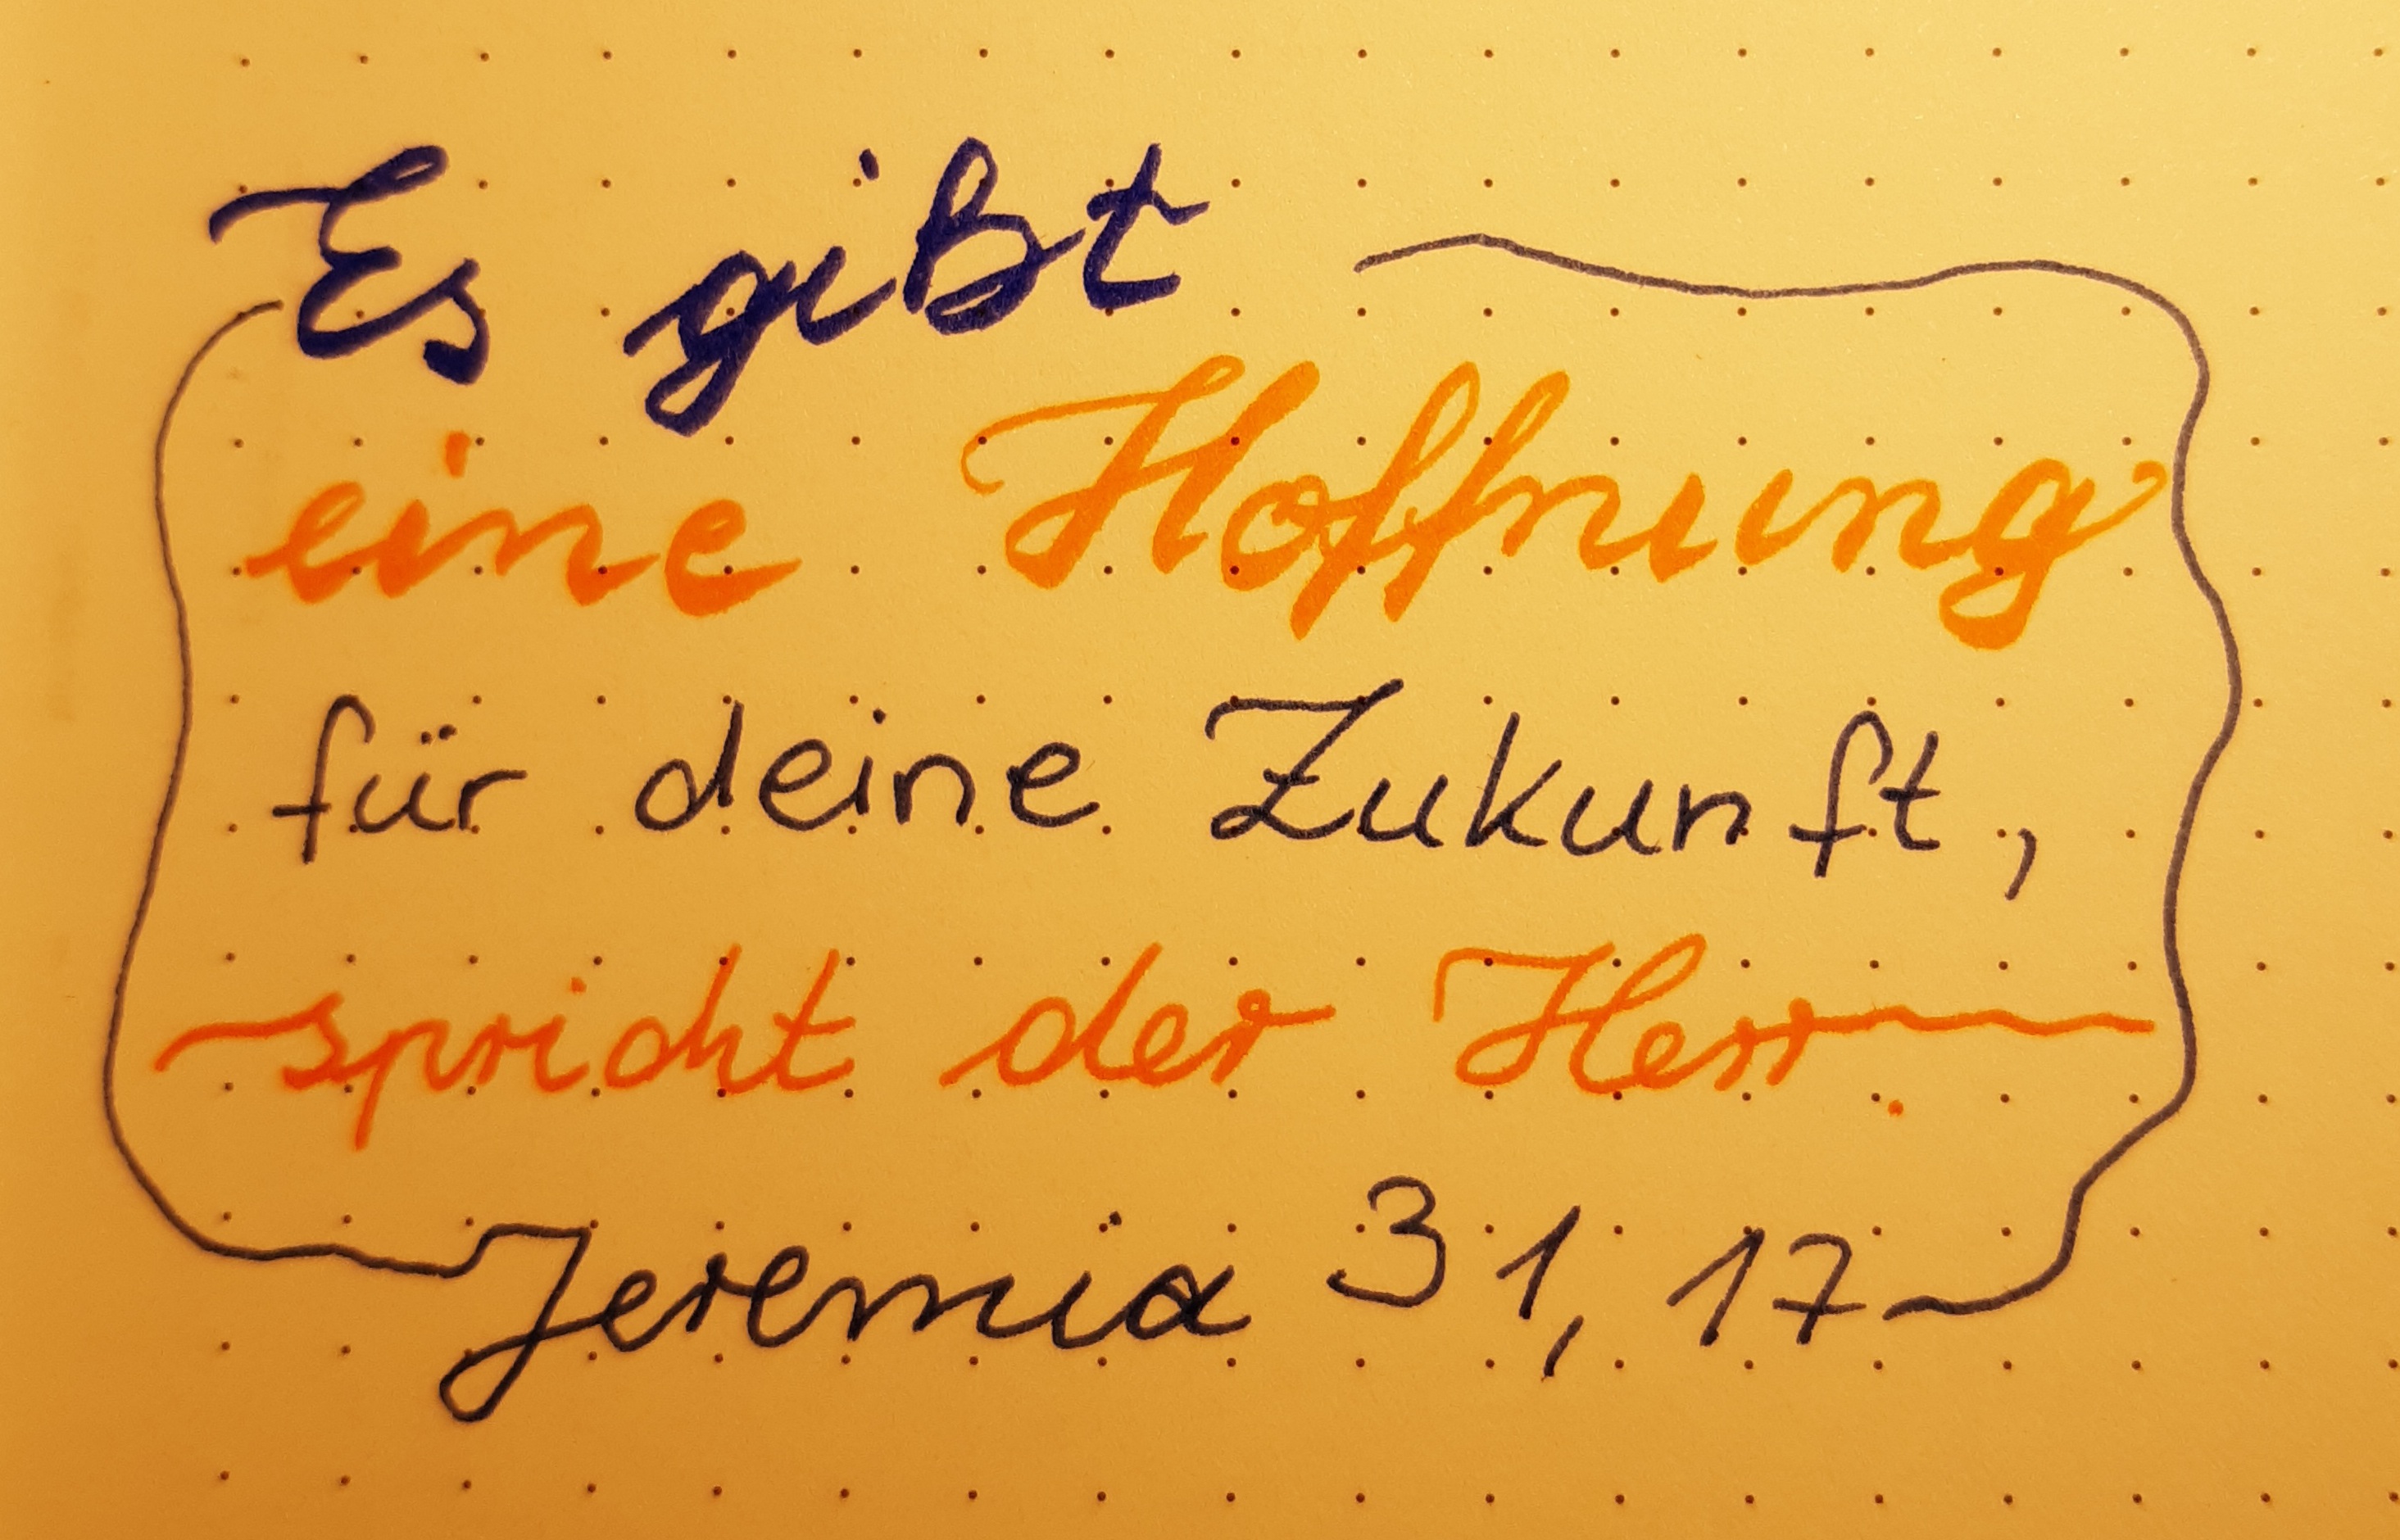 Es gibt
eine Hoffnung
für deine Zukunft,
spricht der Herr.
Jeremia 31, 17